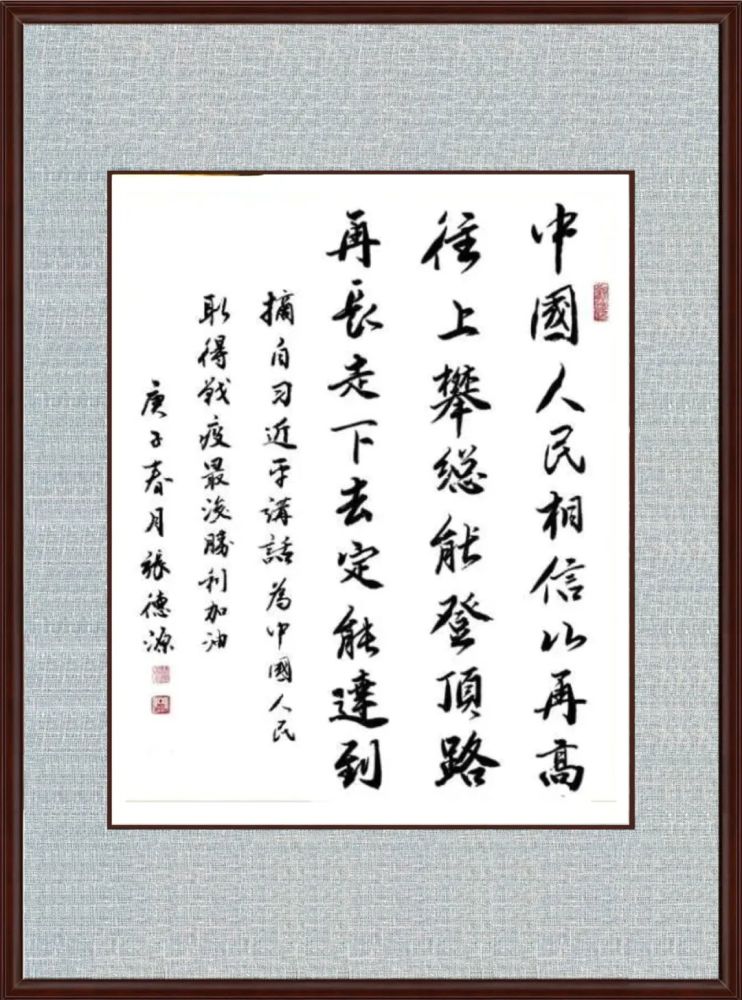 中國人民相信山再高
往上攀總能登頂路
再長走下去定能達到
摘自习近平講話為中國人民
取得战疫最後勝利加油
庚子春月張德源